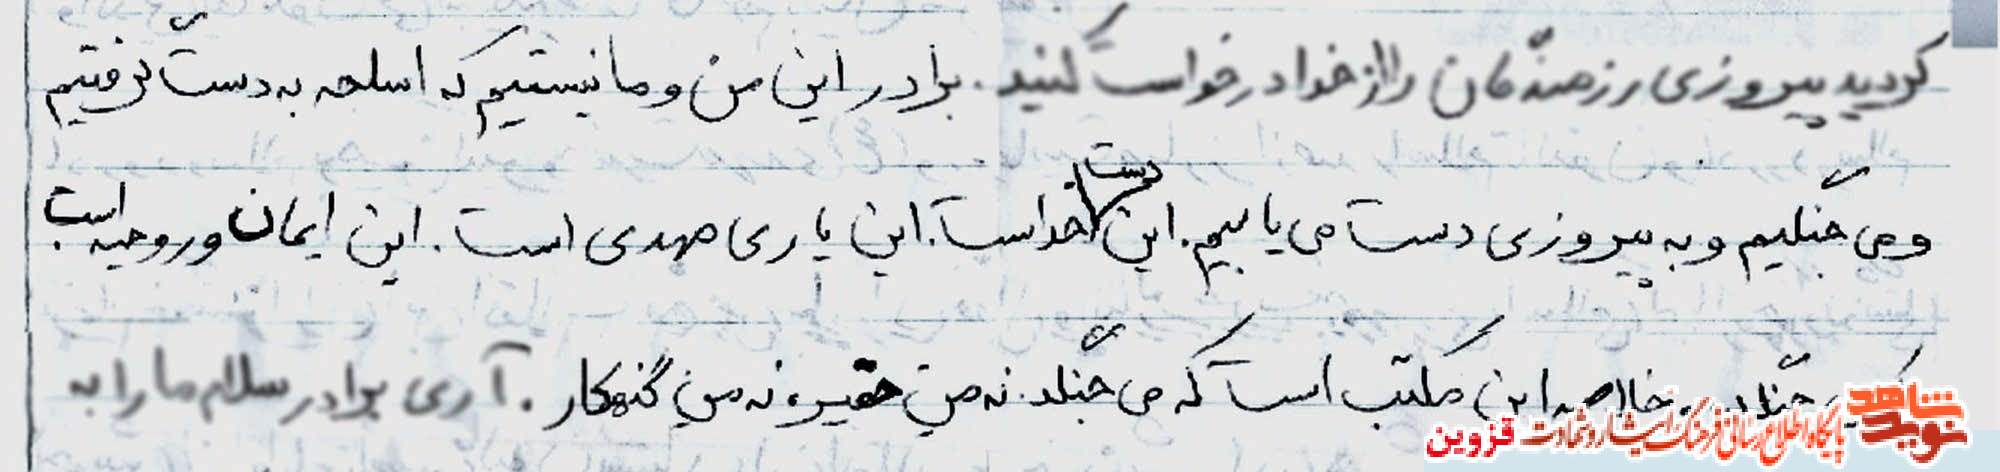 کردید پیروزی رزمندگان را از خدا درخواست کنید. برادر این من و ما نیستیم که اسلحه به دست گرفتیم
و می جنگیم و به پیروزی دست می یابیم. این دست خداست. این یاری مهدی است. این ایمان و روحیه است
که می جنگد. خلاصه این مکتب است که می جنگد. نه من حقیر، نه من گنهکار. آری برادر سلام ما را به
نوید شاهد
پایگاه اطلاع رسانی فرهنگ ایثار و شهادت قزوین